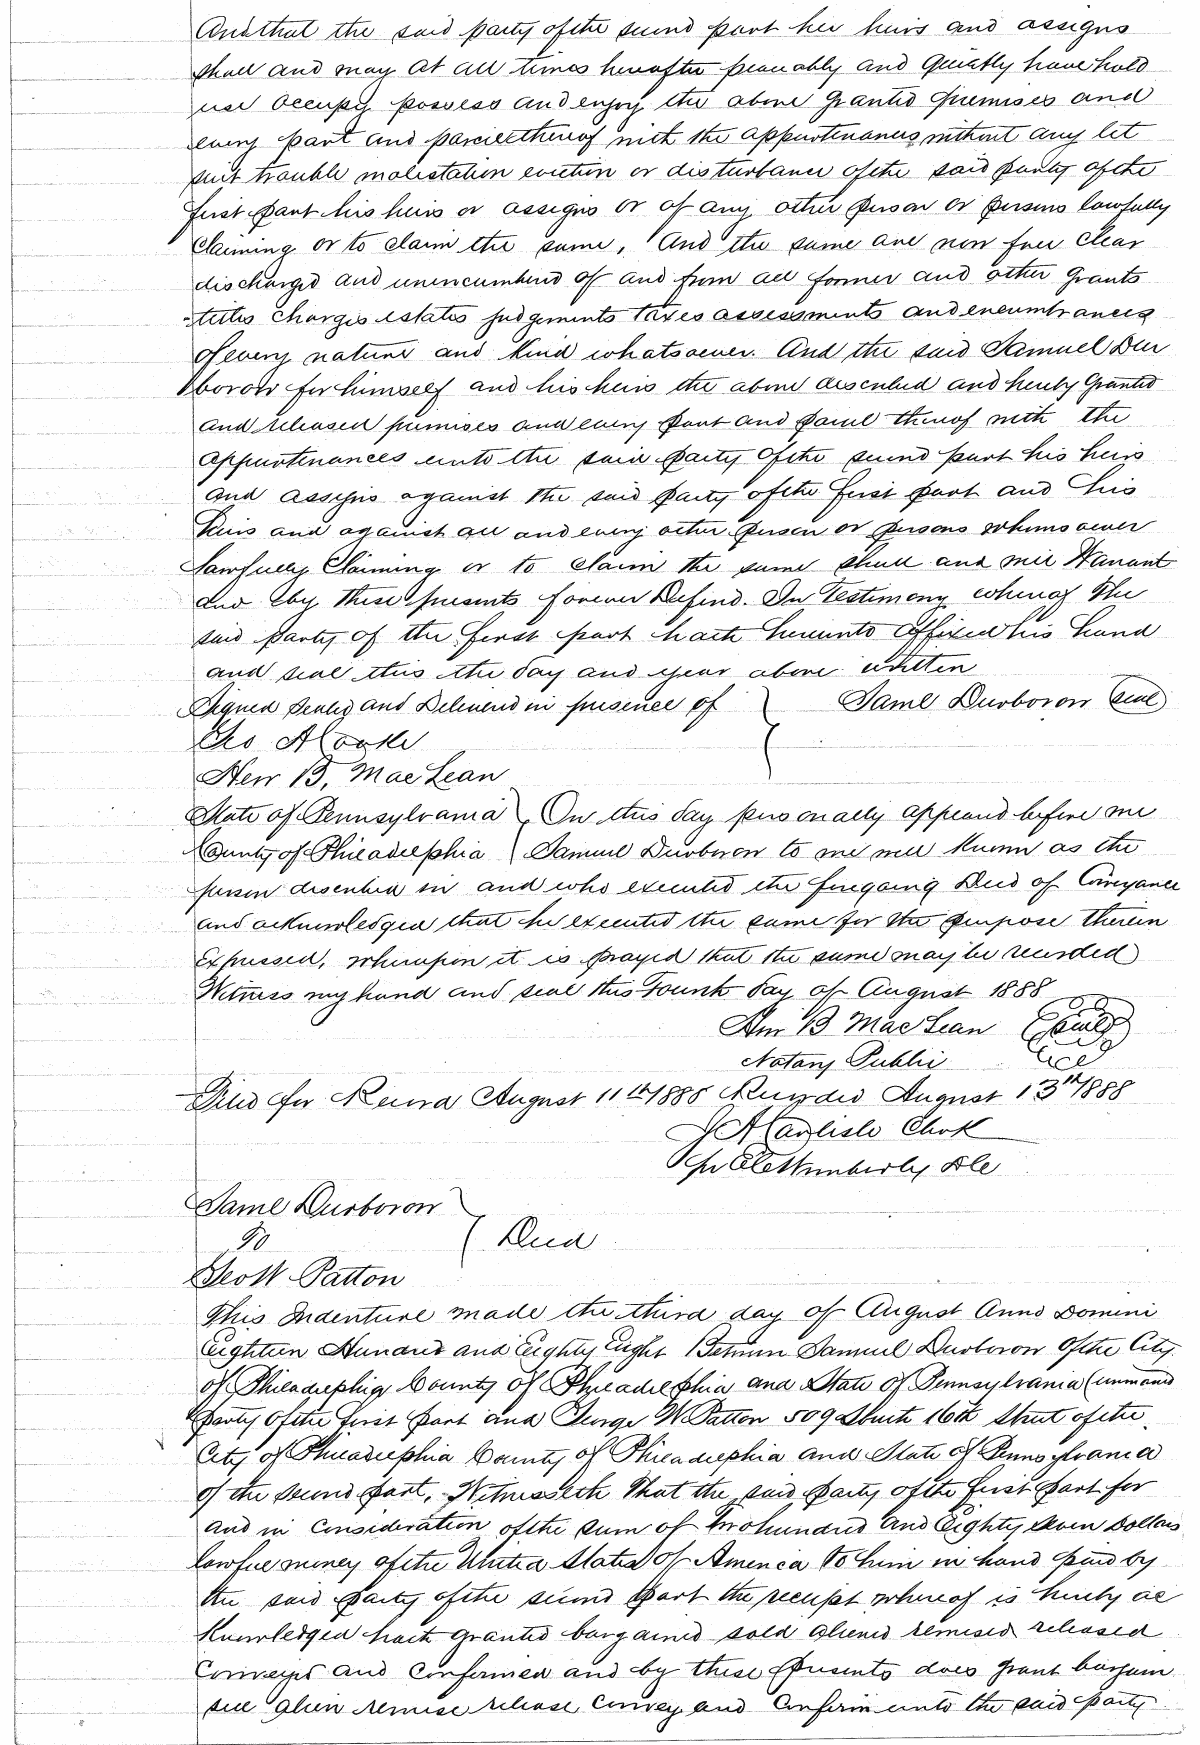 And that the said party of the second part her heirs and assigns
shall and may at all times hereafter peaceably and Quietly have hold
use Occupy possess and enjoy the above Granted premises and
every part and parcel thereof with the appurtenances without any let
suit trouble molestation eviction or disturbance of the said party of the
first part his heirs or assigns or of any other person or persons lawfully
Claiming or to claim the same, And the same are now free clear
discharged and unencumbered of and from all former and other grants
titles charges estates judgements taxes assessments and encumbrances
of every nature and kind whatsoever. And the said Samuel Dur
borow for himself and his heirs the above described and hereby Granted
and released premises and every part and parcel thereof with the
appurtenances unto the said party of the second part his heirs
and assigns against the said party of the first part and his
heirs and against all and every other person or persons whomsoever
lawfully Claiming or to claim the same shall and will Warrant
and by these presents forever Defend. In Testimony whereof The
said party of the first part hath hereunto affixed his hand
and seal this the day and year above written
Signed Sealed and Delivered in presence of } Saml Durborow (seal)
Cooke
Wm B. MacLean
State of Pennsylvania } On this day personally appeared before me
County of Philadelphia } Samuel Durborow to me well known as the
person described in and who executed the foregoing Deed of Conveyance
and acknowledged that he executed the same for the purpose therein
expressed, whereupon it is prayed that the same may be recorded
Witness my hand and seal this Fourth day of August 1888
Wm B MacLean (Seal)
Notary Public
Filed for Record August 11th 1888 Recorded August 13th 1888
J A Carlisle Clerk
pr Wimberly D.C.
Saml Durborow
To } Deed
Geo W Patton
This Indenture made the third day of August Anno Domini
Eighteen Hundred and Eighty Eight Between Samuel Durborow of the City
of Philadelphia County of Philadelphia and State of Pennsylvania
party of the first part and George W Patton 509 South 16th Street of the
City of Philadelphia County of Philadelphia and State of Pennsylvania
of the second part, Witnesseth That the said party of the first part for
and in consideration of the sum of Two hundred and Eighty seven Dollars
lawful money of the United States of America to him in hand paid by
the said party of the second part the receipt whereof is hereby ac
knowledged hath granted bargained sold aliened remised released
Conveyed and Confirmed and by these presents does grant bargain
sell alien remise release Convey and Confirm unto the said party